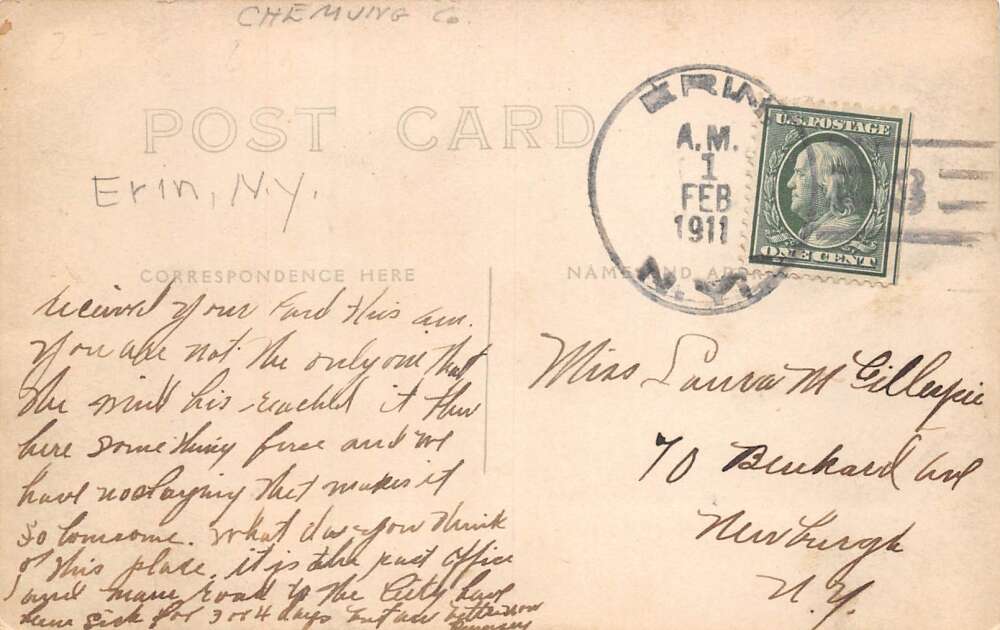 CHEMUNG Co
POST CARD
Erin, N.Y.
ERIN
A.M.
1
FEB
1911
N.Y.
U.S. POSTAGE
ONE CENT
CORRESPONDENCE HERE
NAME AND ADD
received your Card this am.
You are not the only one that
the wind has reached it
here something fierce and we
have no that makes it
So lonesome. What do you think
of this place. it is the post office
and main road to the City have
been Sick for 3 or 4 days but am better now
Miss Laura M Gillespie
70 Benkard Ave
Newburgh
N.Y.